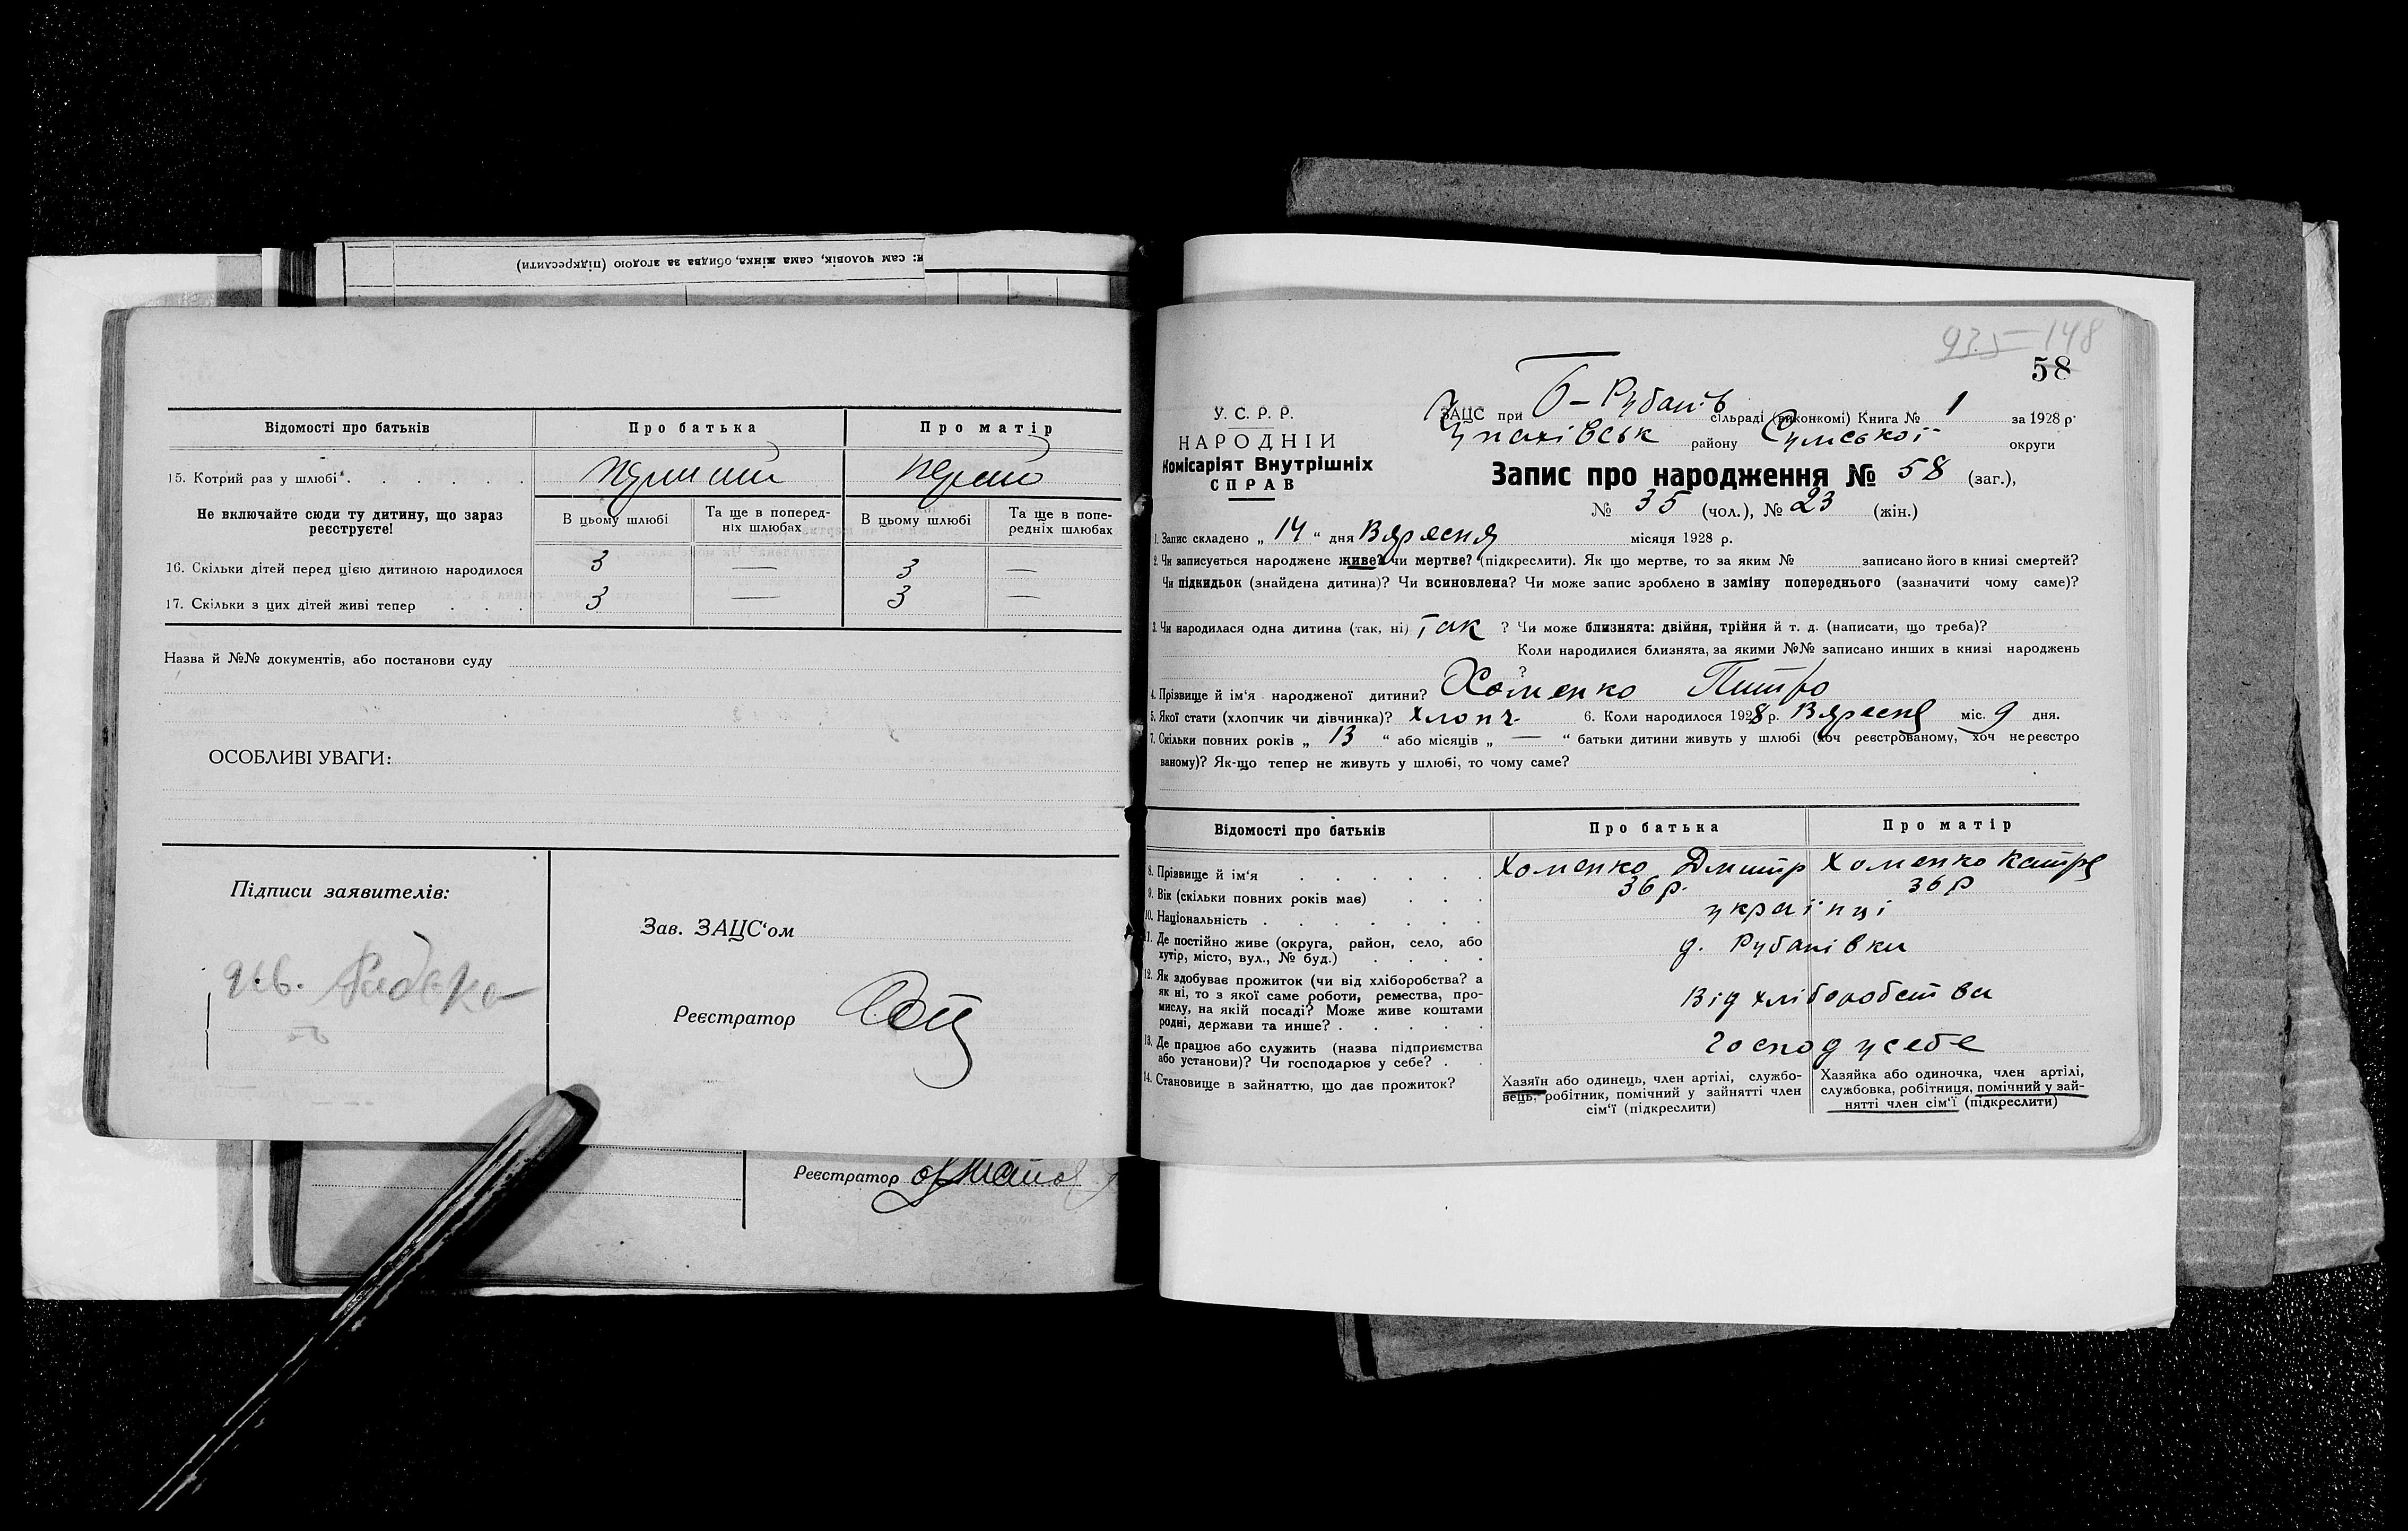 и: сам чоловік, сама жінка, обидва за згодою (підкреслити)
Відомості про батьків
Про батька
Про матір
15. Котрий раз у шлюбі
перший
Не включайте сюди ту дитину, що зараз реєструєте!
В цьому шлюбі
Та ще в попередніх шлюбах
В цьому шлюбі
Та ще в попередніх шлюбах
16. Скільки дітей перед цією дитиною народилося 3 — 3 —
17. Скільки з цих дітей живі тепер . . . 3 — 3 —
Назва й №№ документів, або постанови суду
ОСОБЛИВІ УВАГИ:
Підписи заявителів:
Зав. ЗАЦС‘ом
Реєстратор
Реєстратор
935-148
58
У. С. Р. Р.
НАРОДНІЙ
Комісаріят Внутрішніх
СПРАВ
ЗАЦС при Б-Рубанів сільраді (виконкомі) Книга № 1 за 1928 р.
району Сумської округи
Запис про народження № 58 (заг.),
№ 35 (чол.), № 23 (жін.)
1. Запис складено „ 14 “ дня Вересня місяця 1928 р.
2. Чи записується народжене живе? чи мертве? (підкреслити). Як що мертве, то за яким № записано його в книзі смертей?
Чи підкидьок (знайдена дитина)? Чи всиновлена? Чи може запис зроблено в заміну попереднього (зазначити чому саме)?
3. Чи народилася одна дитина (так, ні) Так ? Чи може близнята: двійня, трійня й т. д. (написати, що треба)?
Коли народилися близнята, за якими №№ записано инших в книзі народжень
?
4. Прізвище й ім‘я народженої дитини? Хоменко Питро
5. Якої стати (хлопчик чи дівчинка)? хлопч. 6. Коли народилося 1928 р. Вересня міс. 9 дня.
7. Скільки повних років „ 13 “ або місяців „ — “ батьки дитини живуть у шлюбі (хоч реєстрованому, хоч нереєстро
ваному)? Як-що тепер не живуть у шлюбі, то чому саме?
Відомості про батьків
Про батька
Про матір
8. Прізвище й ім‘я . . . . . . Хоменко Дмитр Хоменко Катря
9. Вік (скільки повних років має) . . . 36 р. 36 р
10. Національність . . . . . . . українці
11. Де постійно живе (округа, район, село, або
хутір, місто, вул., № буд.) . . . . д. Рубанівка
12. Як здобуває прожиток (чи від хліборобства? а
як ні, то з якої саме роботи, ремества, про-
мислу, на якій посаді? Може живе коштами
родні, держави та инше? . . . . . Від хліборобства
13. Де працює або служить (назва підприємства
або установи)? Чи господарює у себе? . . господ у себе
14. Становище в зайняттю, що дає прожиток?
Хазяїн або одинець, член артілі, службо-
вець, робітник, помічний у зайнятті член
сім‘ї (підкреслити)
Хазяйка або одиночка, член артілі,
службовка, робітниця, помічний у зай-
нятті член сім‘ї (підкреслити)